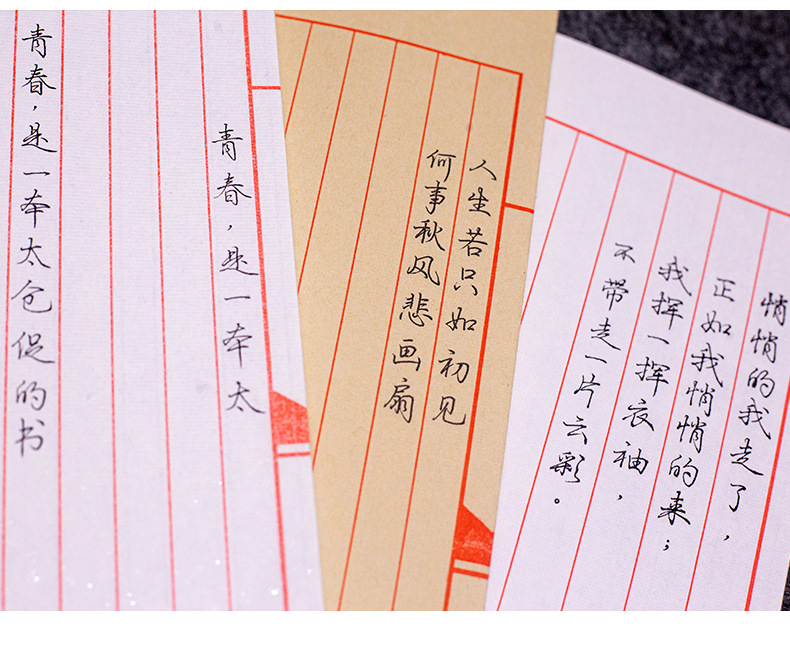 悄悄的我走了，
正如我悄悄的来；
我挥一挥衣袖，
不带走一片云彩。
人生若只如初见
何事秋风悲画扇
青春，是一本太
青春，是一本太仓促的书